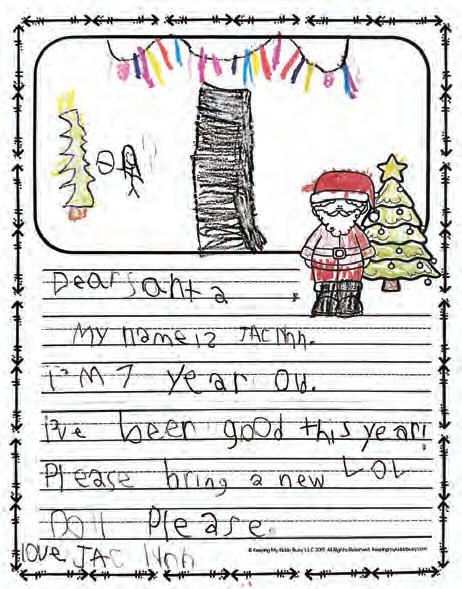 Dear Santa,
My name is JAClynn.
I'M 7 year old.
I've been good this year!
Please bring a new LOL
Doll Please.
© Keeping My Kiddo Busy LLC 2019. All Rights Reserved. keepingmykiddobusy.com
love JAC lynn